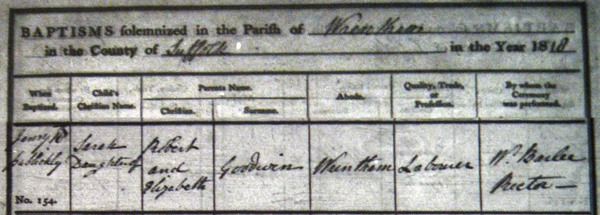 BAPTISMS solemnized in the Parish of Wrentham
in the County of Suffolk in the Year 1818
When Baptized. Child's Christian Name. Parents Name. Abode. Quality, Trade, or Profession. By whom the Ceremony was performed.
Christian. Surname.
Sarah Daughter of Robert and Elizabeth Goodwin Wrentham Labourer Wm Rector
No. 154.